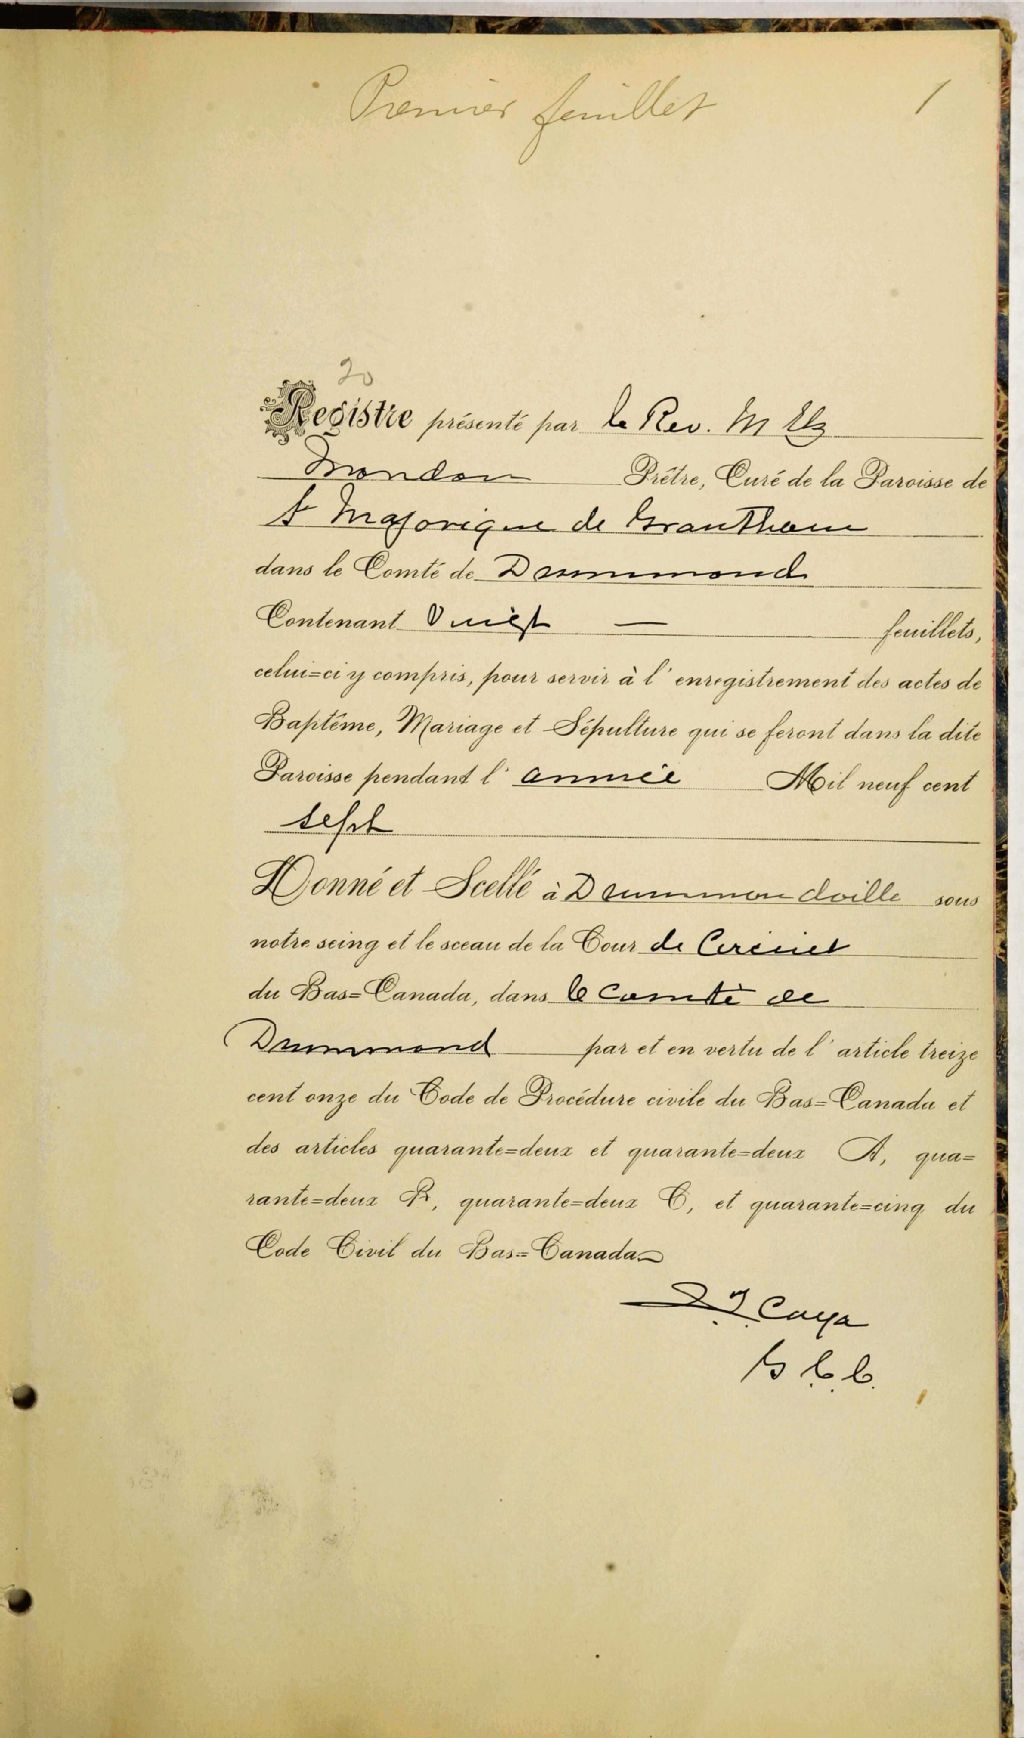 Premier feuillet 1
20
Registre présenté par le Rev. M Elz
Mondou Prêtre, Curé de la Paroisse de
St Majorique de Grantham
dans le Comté de Drummond
Contenant Vingt — feuillets,
celui=ci y compris, pour servir à l'enregistrement des actes de
Baptême, Mariage et Sépulture qui se feront dans la dite
Paroisse pendant l'année Mil neuf cent
sept
Donné et Scellé à Drummondville sous
notre seing et le sceau de la Cour de Circuit
du Bas=Canada, dans le comté de
Drummond par et en vertu de l'article treize
cent onze du Code de Procédure civile du Bas=Canada et
des articles quarante=deux et quarante=deux A, qua=
rante=deux B, quarante=deux C, et quarante=cinq du
Code Civil du Bas=Canada
Caya
G. C. C.